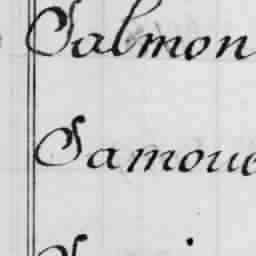 Salmon
Samoue